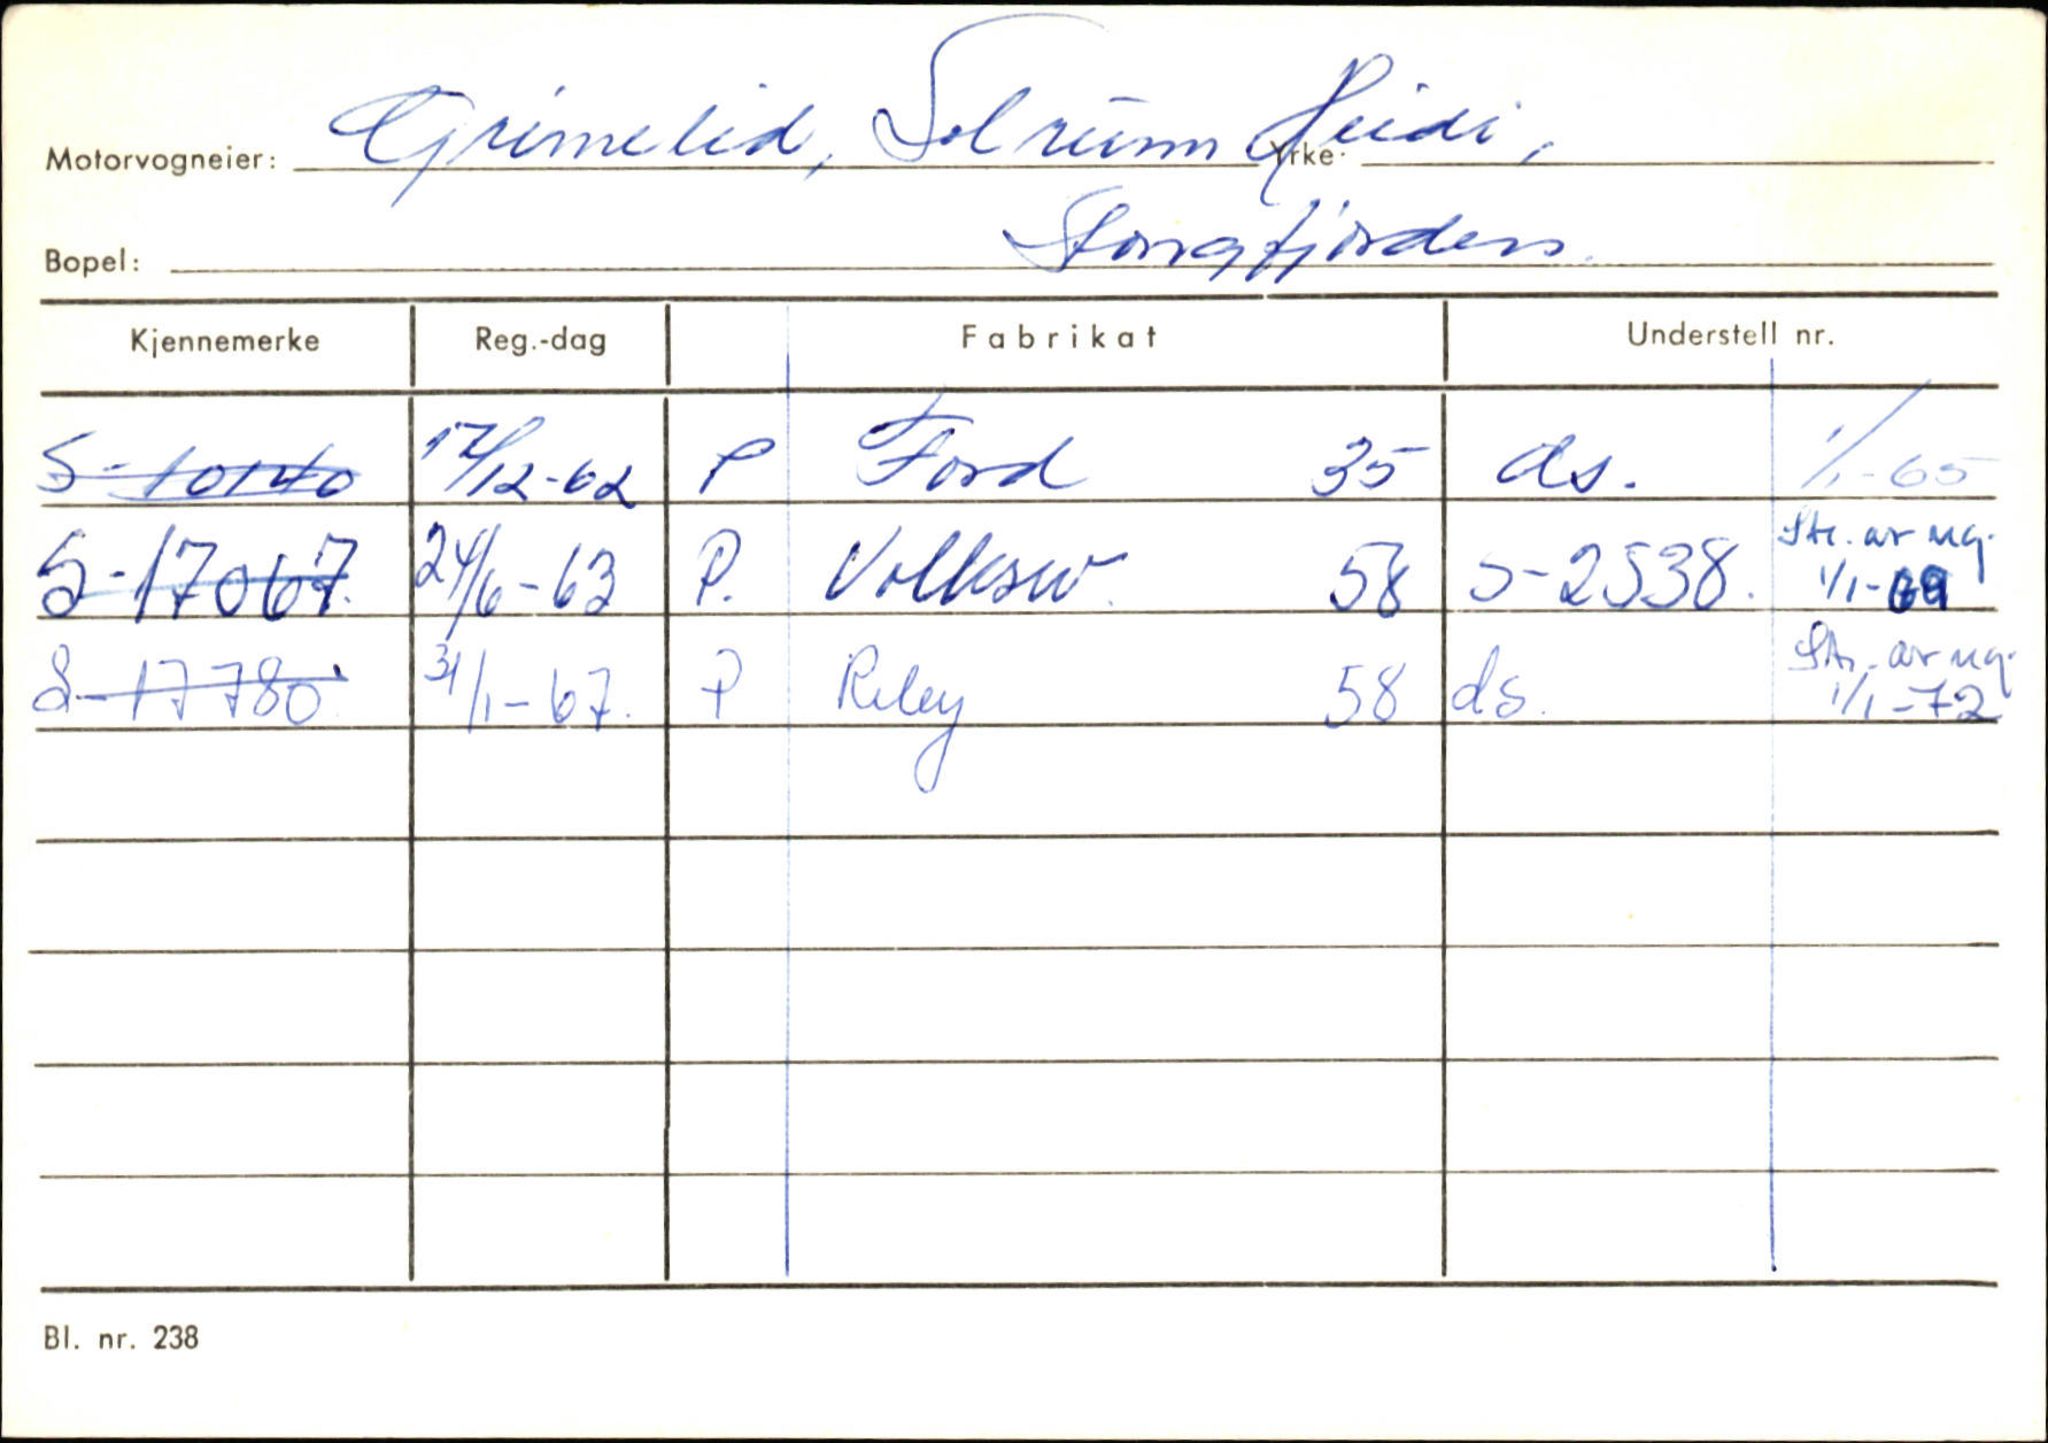 Motorvogneier: Grimelid, Solrunn Heidi, Yrke:
Bopel: Stongfjorden.
Kjennemerke Reg.-dag Fabrikat Understell nr.
S-10140 17/12-62 P Ford 35 ds. 1/1-65
S-17067. 24/6-63 P. Volksw. 58 S-2538. Str. av reg. 1/1-69
S-17780 31/1-67. P Riley 58 ds. Str. av reg. 1/1-72
Bl. nr. 238